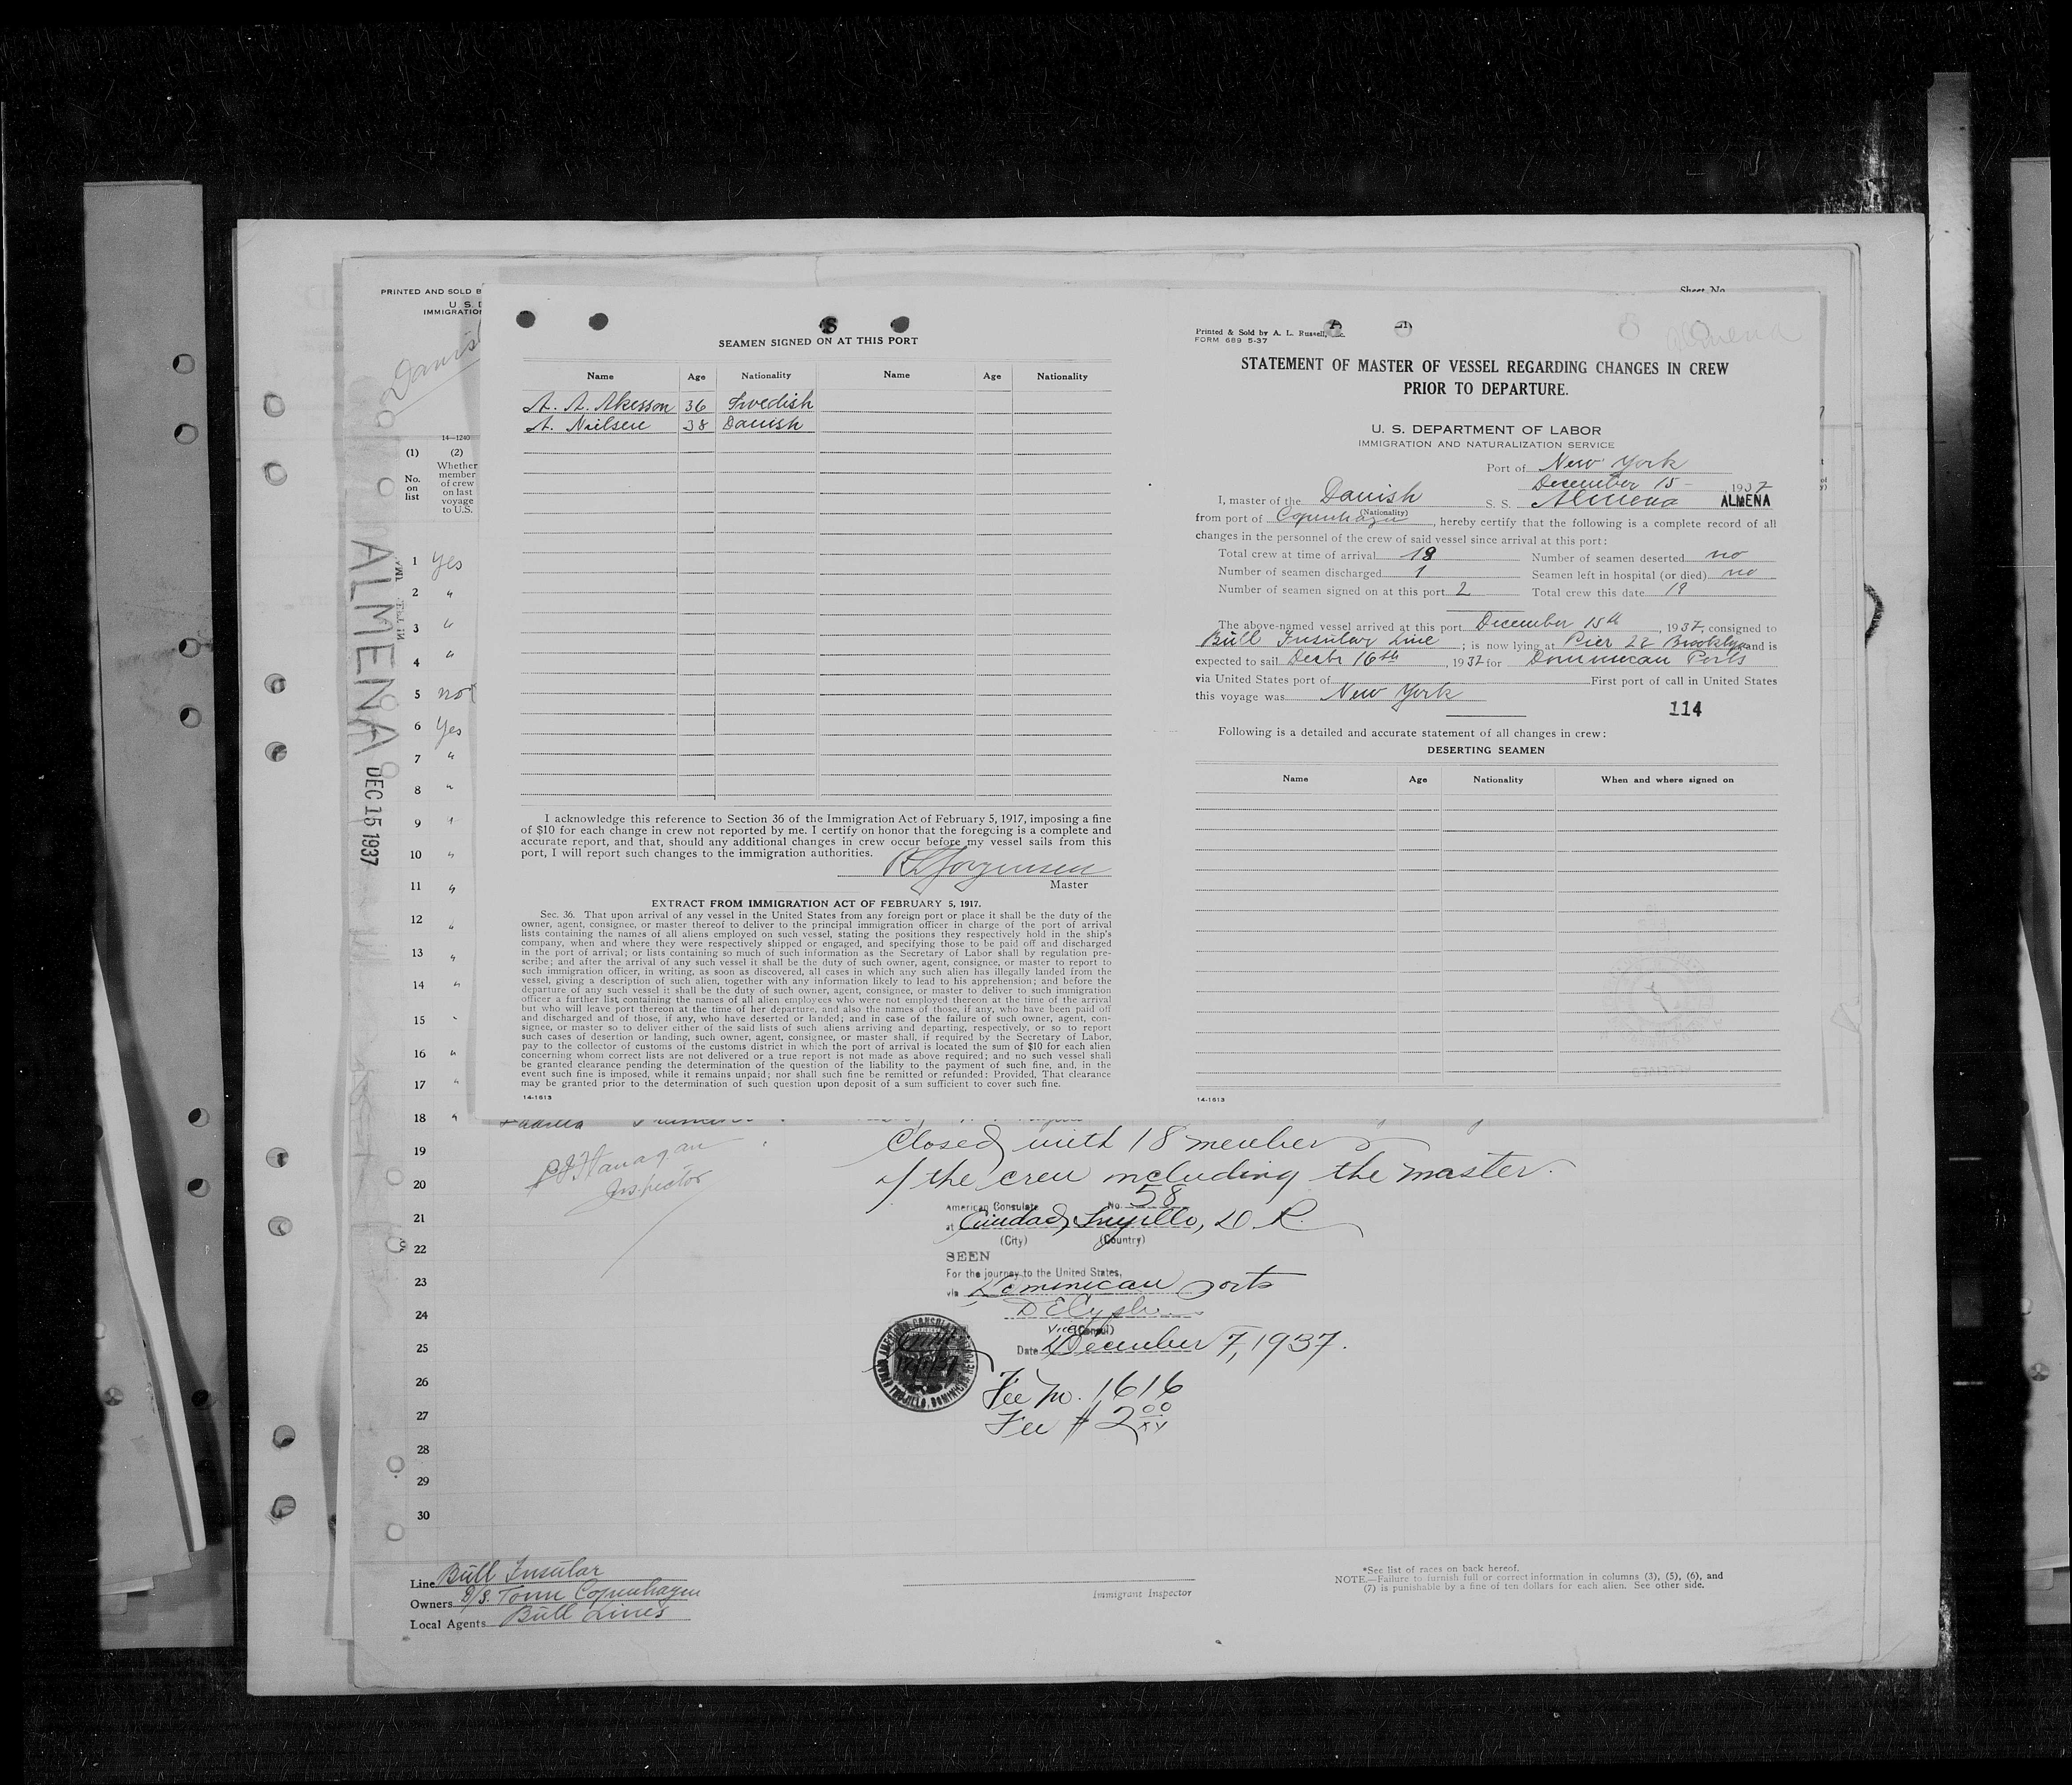 PRINTED AND SOLD B
U. S. D
IMMIGRATIO
Danis
14—1240
(1) (2)
No. on list
Whether member of crew on last voyage to U.S.
ALMENA
DEC 15 1937
1 Yes
2 "
3 "
4 "
5 no
6 Yes
7 "
8 "
9 "
10 "
11 "
12 "
13 "
14 "
15 "
16 "
17 "
18 "
19
20
21
22
23
24
25
26
27
28
29
30
SEAMEN SIGNED ON AT THIS PORT
Name Age Nationality Name Age Nationality
A. A. Akesson 36 Swedish
A. Nielsen 38 Danish
I acknowledge this reference to Section 36 of the Immigration Act of February 5, 1917, imposing a fine
of $10 for each change in crew not reported by me. I certify on honor that the foregoing is a complete and
accurate report, and that, should any additional changes in crew occur before my vessel sails from this
port, I will report such changes to the immigration authorities.
Jorgensen
Master
EXTRACT FROM IMMIGRATION ACT OF FEBRUARY 5, 1917.
Sec. 36. That upon arrival of any vessel in the United States from any foreign port or place it shall be the duty of the
owner, agent, consignee, or master thereof to deliver to the principal immigration officer in charge of the port of arrival
lists containing the names of all aliens employed on such vessel, stating the positions they respectively hold in the ship's
company, when and where they were respectively shipped or engaged, and specifying those to be paid off and discharged
in the port of arrival; or lists containing so much of such information as the Secretary of Labor shall by regulation pre-
scribe; and after the arrival of any such vessel it shall be the duty of such owner, agent, consignee, or master to report to
such immigration officer, in writing, as soon as discovered, all cases in which any such alien has illegally landed from the
vessel, giving a description of such alien, together with any information likely to lead to his apprehension; and before the
departure of any such vessel it shall be the duty of such owner, agent, consignee, or master to deliver to such immigration
officer a further list, containing the names of all alien employees who were not employed thereon at the time of the arrival
but who will leave port thereon at the time of her departure, and also the names of those, if any, who have been paid off
and discharged and of those, if any, who have deserted or landed; and in case of the failure of such owner, agent, con-
signee, or master so to deliver either of the said lists of such aliens arriving and departing, respectively, or so to report
such cases of desertion or landing, such owner, agent, consignee, or master shall, if required by the Secretary of Labor,
pay to the collector of customs of the customs district in which the port of arrival is located the sum of $10 for each alien
concerning whom correct lists are not delivered or a true report is not made as above required; and no such vessel shall
be granted clearance pending the determination of the question of the liability to the payment of such fine, and, in the
event such fine is imposed, while it remains unpaid; nor shall such fine be remitted or refunded: Provided, That clearance
may be granted prior to the determination of such question upon deposit of a sum sufficient to cover such fine.
14-1613
Sheet No.
Printed & Sold by A. L. Russell, Inc.
FORM 689 5-37
Almena
STATEMENT OF MASTER OF VESSEL REGARDING CHANGES IN CREW
PRIOR TO DEPARTURE.
U. S. DEPARTMENT OF LABOR
IMMIGRATION AND NATURALIZATION SERVICE
Port of New York
December 15 - , 1937
I, master of the Danish S. S. Almena ALMENA
(Nationality)
from port of Copenhagen, hereby certify that the following is a complete record of all
changes in the personnel of the crew of said vessel since arrival at this port:
Total crew at time of arrival 18 Number of seamen deserted no
Number of seamen discharged 1 Seamen left in hospital (or died) no
Number of seamen signed on at this port 2 Total crew this date 19
The above-named vessel arrived at this port December 15th, 1937, consigned to
Bull Insular Line; is now lying at Pier 22 Brooklyn and is
expected to sail Decbr 16th, 1937 for Dominican Ports
via United States port of First port of call in United States
this voyage was New York
114
Following is a detailed and accurate statement of all changes in crew:
DESERTING SEAMEN
Name Age Nationality When and where signed on
14-1613
Closed with 18 members
of the crew including the master.
Flanagan
Inspector
American Consulate No. 58
at Ciudad Trujillo, D. R.
(City) (Country)
SEEN
For the journey to the United States,
via Dominican ports
Vice (Consul)
Date December 7, 1937.
Fee No. 1616
Fee # 2 00/xx
Line Bull Insular
Owners D/S. Torm Copenhagen
Local Agents Bull Lines
Immigrant Inspector
*See list of races on back hereof.
NOTE.—Failure to furnish full or correct information in columns (3), (5), (6), and
(7) is punishable by a fine of ten dollars for each alien. See other side.